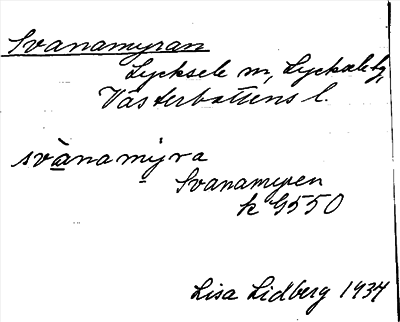 Svanamyran
Lycksele m, Lycksele tg,
Västerbottens l.
svànamyra
Svanamyren
k G550
Lisa Lidberg 1934